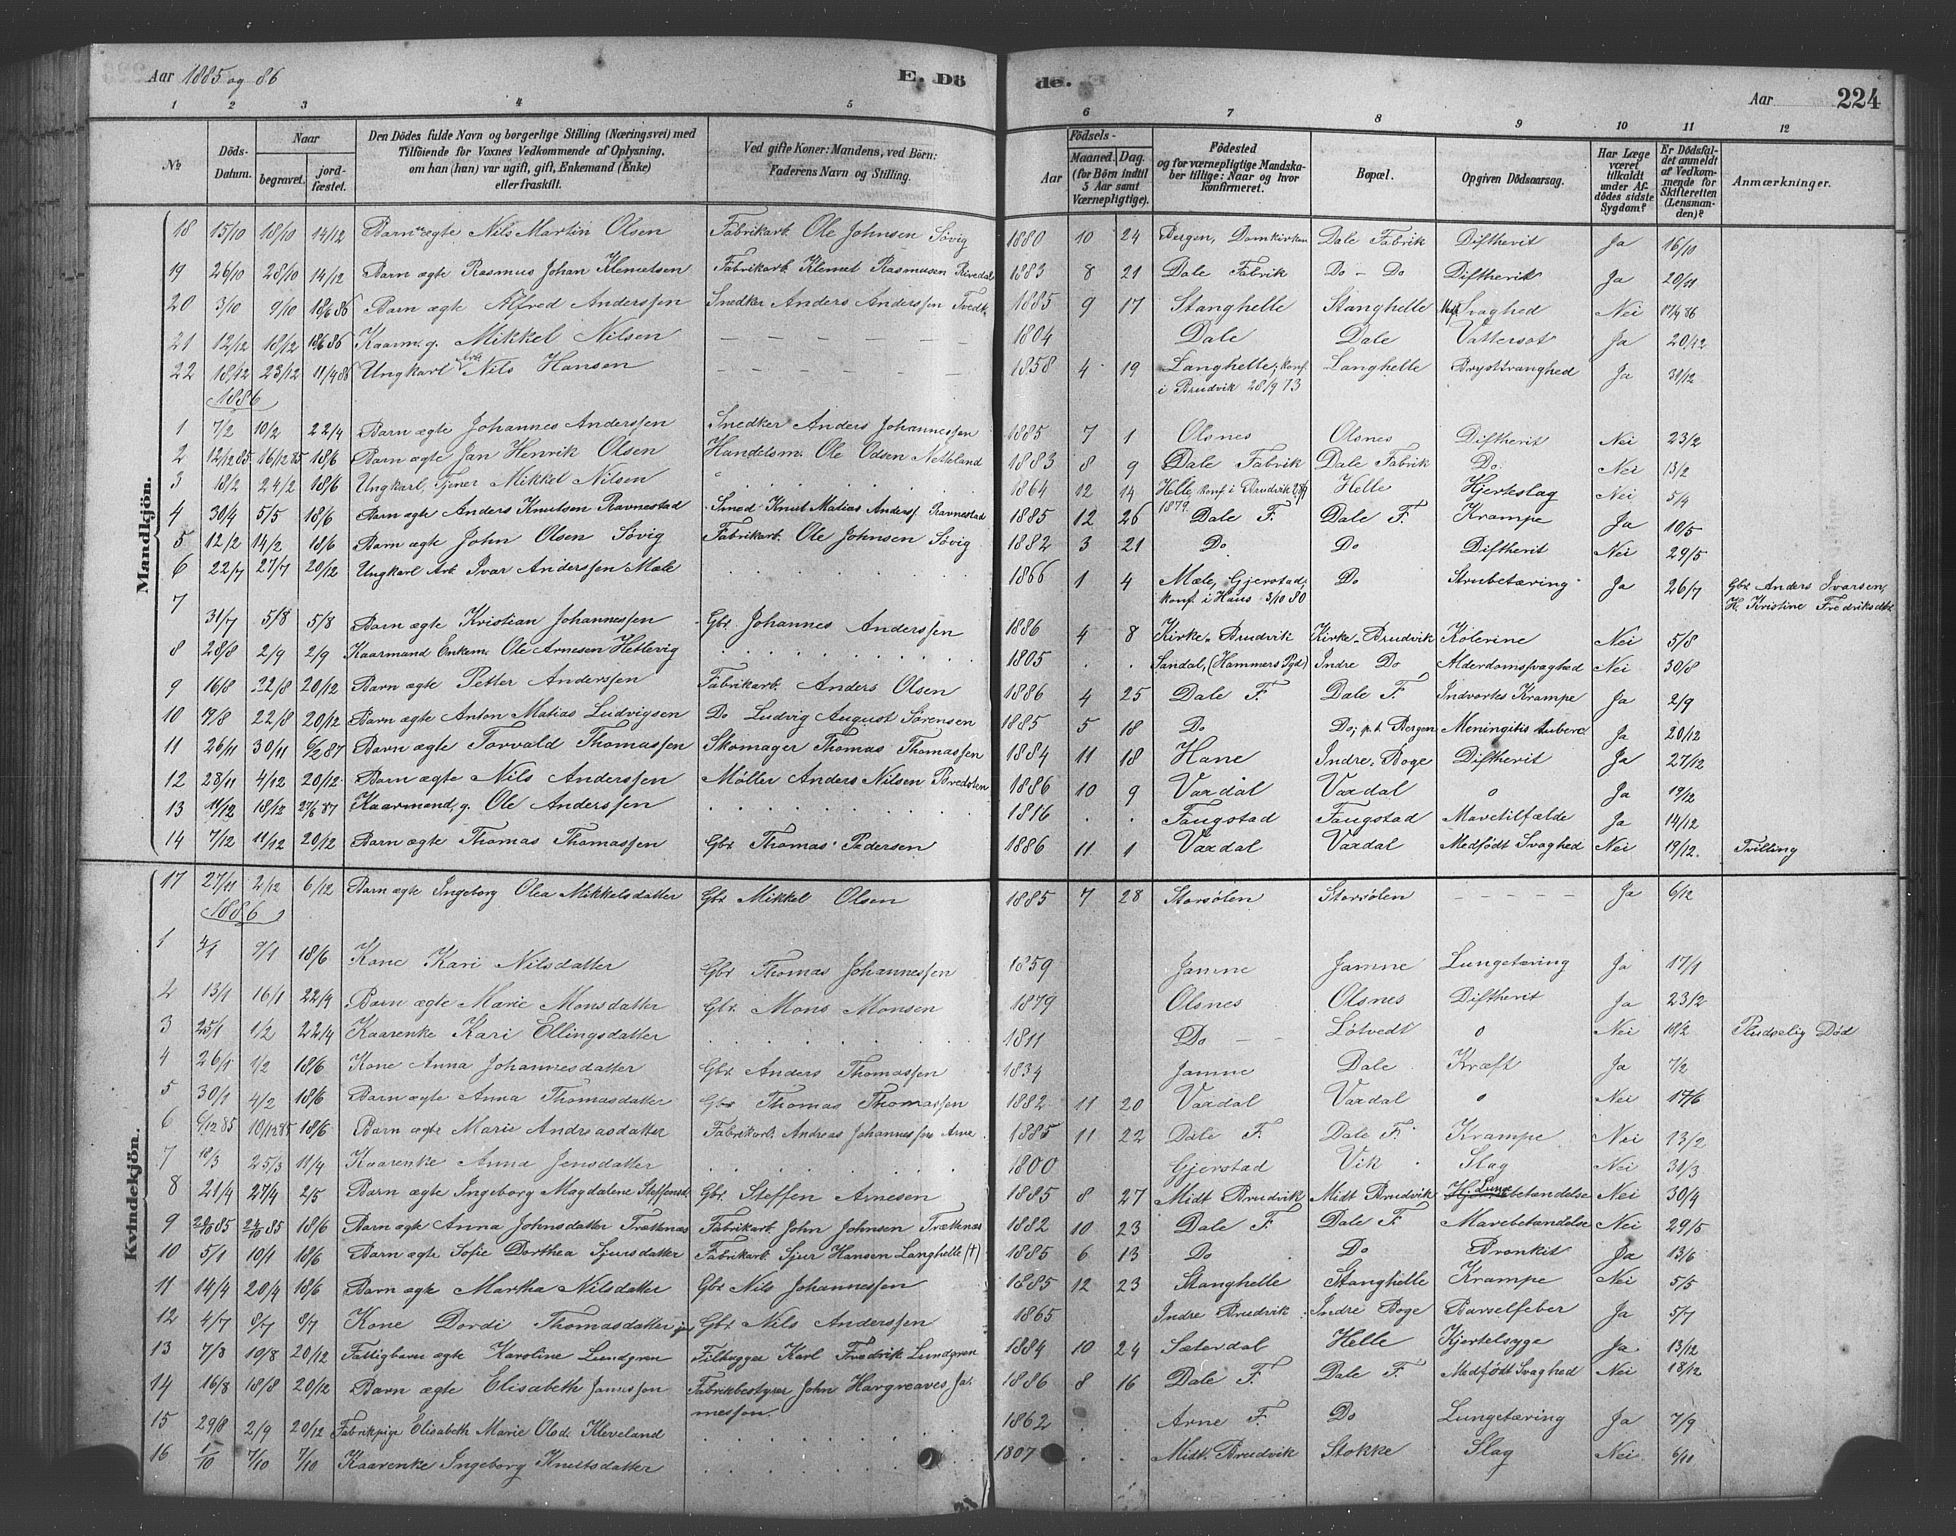 Aar 1885 og 86 E. Dö de. Aar 224
1 2 3 4 5 6 7 8 9 10 11 12
№ Döds-Datum. Naar begravet. jord-fæstet. Den Dödes fulde Navn og borgerlige Stilling (Næringsvei) med Tilföiende for Voxnes Vedkommende af Oplysning, om han (hun) var ugift, gift, Enkemand (Enke) eller fraskilt. Ved gifte Koner: Mandens, ved Börn: Faderens Navn og Stilling. Födsels- Aar Maaned. Dag. (for Börn indtil 5 Aar samt Værnepligtige). Födested og for værnepligtige Mandska-ber tillige: Naar og hvor konfirmeret. Bopæl. Opgiven Dödsaarsag. Har Læge været tilkaldt under Af-dödes sidste Sygdom? Er Dödsfal-det anmeldt af Vedkom-mende for Skifteretten (Lensman-den)? Anmærkninger.
Mandkjön.
18 15/10 18/10 14/12 Barn ægte Nils Martin Olsen Fabrikarb. Ole Johnsen Søvig 1880 10 24 Bergen, Domkirken Dale Fabrik Diftherit Ja 16/10
19 26/10 28/10 14/12 Barn ægte Rasmus Johan Klemetsen Fabrikarb. Klemet Rasmusen Rivedal 1883 8 21 Dale Fabrik Do - Do Diftherit Ja 20/11
20 3/10 9/10 18/6 86 Barn ægte Alfred Anderssen Snedker Anders Anderssen Tvedt 1885 9 17 Stanghelle Stanghelle Svaghed Nei 17/4 86
21 12/12 18/12 18/6 86 Kaarm. g. Mikkel Nilsen - - - - - - 1804 Dale Dale Vattersot Ja 20/12
22 18/12 23/12 11/4 86 Ungkarl Nils Hansen - - - - - - 1858 4 19 Langhelle, konf. i Brudvik 28/9 73 Langhelle Brysttranghed Ja 31/12
1886
1 7/2 10/2 22/4 Barn ægte Johannes Anderssen Snedker Anders Johannessen 1885 7 1 Olsnes Olsnes Diftherit Nei 23/2
2 12/12 85 16/12 85 18/6 Barn ægte Jan Henrik Olsen Handelsm. Ole Odsen Netteland 1883 8 9 Dale Fabrik Dale Fabrik Do. Nei 13/2
3 18/2 24/2 18/6 Ungkarl, Tjener Mikkel Nilsen 1864 12 14 Helle, konf. i Brudvik 28/9 1879 Helle Hjerteslag Nei 5/4
4 30/4 5/5 18/6 Barn ægte Anders Knutsen Ravnestad Smed Knut Matias Anderss. Ravnestad 1885 12 26 Dale F. Dale F. Krampe Ja 10/5
5 12/2 14/2 18/6 Barn ægte John Olsen Søvig Fabrikarb. Ole Johnsen Søvig 1882 3 21 Do. Do Diftherit Nei 29/5
6 22/7 27/7 20/12 Ungkarl Arb. Ivar Anderssen Mæle 1866 1 4 Mæle, Gjerstad, konf. i Haus 3/10 80 Do Strubetæring Ja 26/7 Gbr. Anders Ivarsen, H. Kristine Fredriksdtr.
7 31/7 5/8 5/8 Barn ægte Kristian Johannessen Gbr. Johannes Anderssen 1886 4 8 Kirke-Brudvik Kirke-Brudvik Kolerine Nei 5/8
8 28/8 2/9 2/9 Kaarmand Enkem. Ole Arnesen Hellevig 1805 Sandal, (Hammers Pgd) Indre Do Alderdomssvaghed Nei 30/8
9 16/8 22/8 20/12 Barn ægte Petter Anderssen Fabrikarb. Anders Olsen 1886 4 25 Dale F. Dale F. Indvortes Krampe Ja 2/9
10 17/8 22/8 20/12 Barn ægte Anton Matias Ludvigsen Do Ludvig August Sørensen 1885 5 18 Do Do; p.t. Bergen Meningitis tuberc Ja 20/12
11 26/11 30/11 6/2 87 Barn ægte Torvald Thomassen Skomager Thomas Thomassen 1884 11 18 Hane Indre-Boge Diftherit Ja 27/12
12 28/11 4/12 20/12 Barn ægte Nils Anderssen Møller Anders Nilsen Bredsten 1886 10 9 Vaxdal Vaxdal o Ja 19/12
13 11/12 18/12 27/6 87 Kaarmand, g. Ole Anderssen 1816 Faugstad Faugstad Mavetilfælde Ja 14/12
14 7/12 11/12 20/12 Barn ægte Thomas Thomassen Gbr. Thomas Pedersen 1886 11 1 Vaxdal Vaxdal Medfødt Svaghed Nei 19/12 Tvilling
Kvindekjön.
17 27/11 2/12 6/12 Barn ægte Ingeborg Olea Mikkelsdatter Gbr. Mikkel Olsen 1885 7 28 Storsølen Storsølen - - - - - Ja 6/12
1886
1 4/1 9/1 18/6 Kone Kari Nilsdatter Gbr Thomas Johannessen 1859 Jamne Jamne Lungetæring Ja 17/1
2 13/1 16/1 22/4 Barn ægte Marie Monsdatter Gbr. Mons Monsen 1879 Olsnes Olsnes Diftherit Ja 23/2
3 25/1 1/2 22/4 Kaarenke Kari Ellingsdatter 1811 Do - - Løtvedt o Nei 10/2 Pludselig Død
4 26/1 1/2 18/6 Kone Anna Johannesdatter Gbr. Anders Thomassen 1834 Jamne Dale Kræft Ja 7/2
5 30/1 4/2 18/6 Barn ægte Anna Thomasdatter Gbr Thomas Thomassen 1882 11 20 Vaxdal Vaxdal o Nei 17/6
6 6/12 85 10/12 85 18/6 Barn ægte Marie Andreasdatter Fabrikarb. Andreas Johannessen Arne 1885 11 22 Dale F. Dale F. Krampe Nei 13/2
7 18/3 25/3 11/4 Kaarenke Anna Jensdatter 1800 Gjerstad Vik Slag Nei 31/3
8 21/4 27/4 2/5 Barn ægte Ingeborg Magdalene Steffensd. Gbr. Steffen Arnesen 1885 8 27 Midt Brudvik Midt Brudvik Lungebetændelse Nei 30/4
9 85 85 18/6 Barn ægte Anna Johnsdatter Trættenæs Fabrikarb. John Johnsen Trætnæs 1882 10 23 Dale F. Dale F. Mavebetændelse Nei 29/5
10 5/1 10/1 18/6 Barn ægte Sofie Dorthea Sjursdatter Fabrikarb. Sjur Hansen Langhelle (†) 1885 6 13 Do Do Bronkit Ja 13/6
11 14/4 20/4 18/6 Barn ægte Martha Nilsdatter Gbr. Nils Johannessen 1885 12 23 Stanghelle Stanghelle Krampe Nei 5/5
12 4/7 8/7 8/7 Kone Dordi Thomasdatter Gbr. Nils Anderssen 1865 Indre Brudvik Indre Boge Barselfeber Ja 5/7
13 7/8 10/8 20/12 Fattigbarn ægte Karoline Lundgren Filhugger Karl Fredrik Lundgren 1884 10 24 Sæterdal Helle Kjertelsyge Ja 13/12
14 16/8 18/8 20/12 Barn ægte Elisabeth Jamessen Fabrikbestyrer John Hargreaves Ja-messen. 1886 8 16 Dale F. Dale F. Medfødt Svaghed Nei 18/12
15 29/8 2/9 20/12 Fabrikpige Elisabeth Marie Olsd. Kleveland 1862 Arne F. Do Lungetæring Ja 7/9
16 1/10 7/10 7/10 Kaarenke Ingeborg Knutsdatter 1807 Midt-Brudvik Stokke Slag Nei 6/11